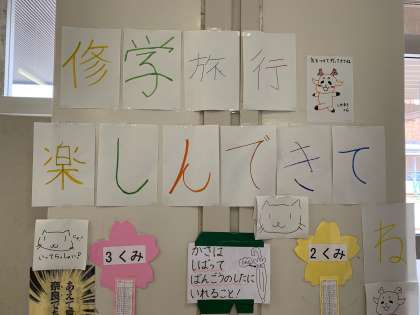 修学旅行
楽しんできて
ね
いってらっしゃい!
3くみ
かさは
しばって
ばんごうのしたに
いれること!
2くみ
あえて
奈良で